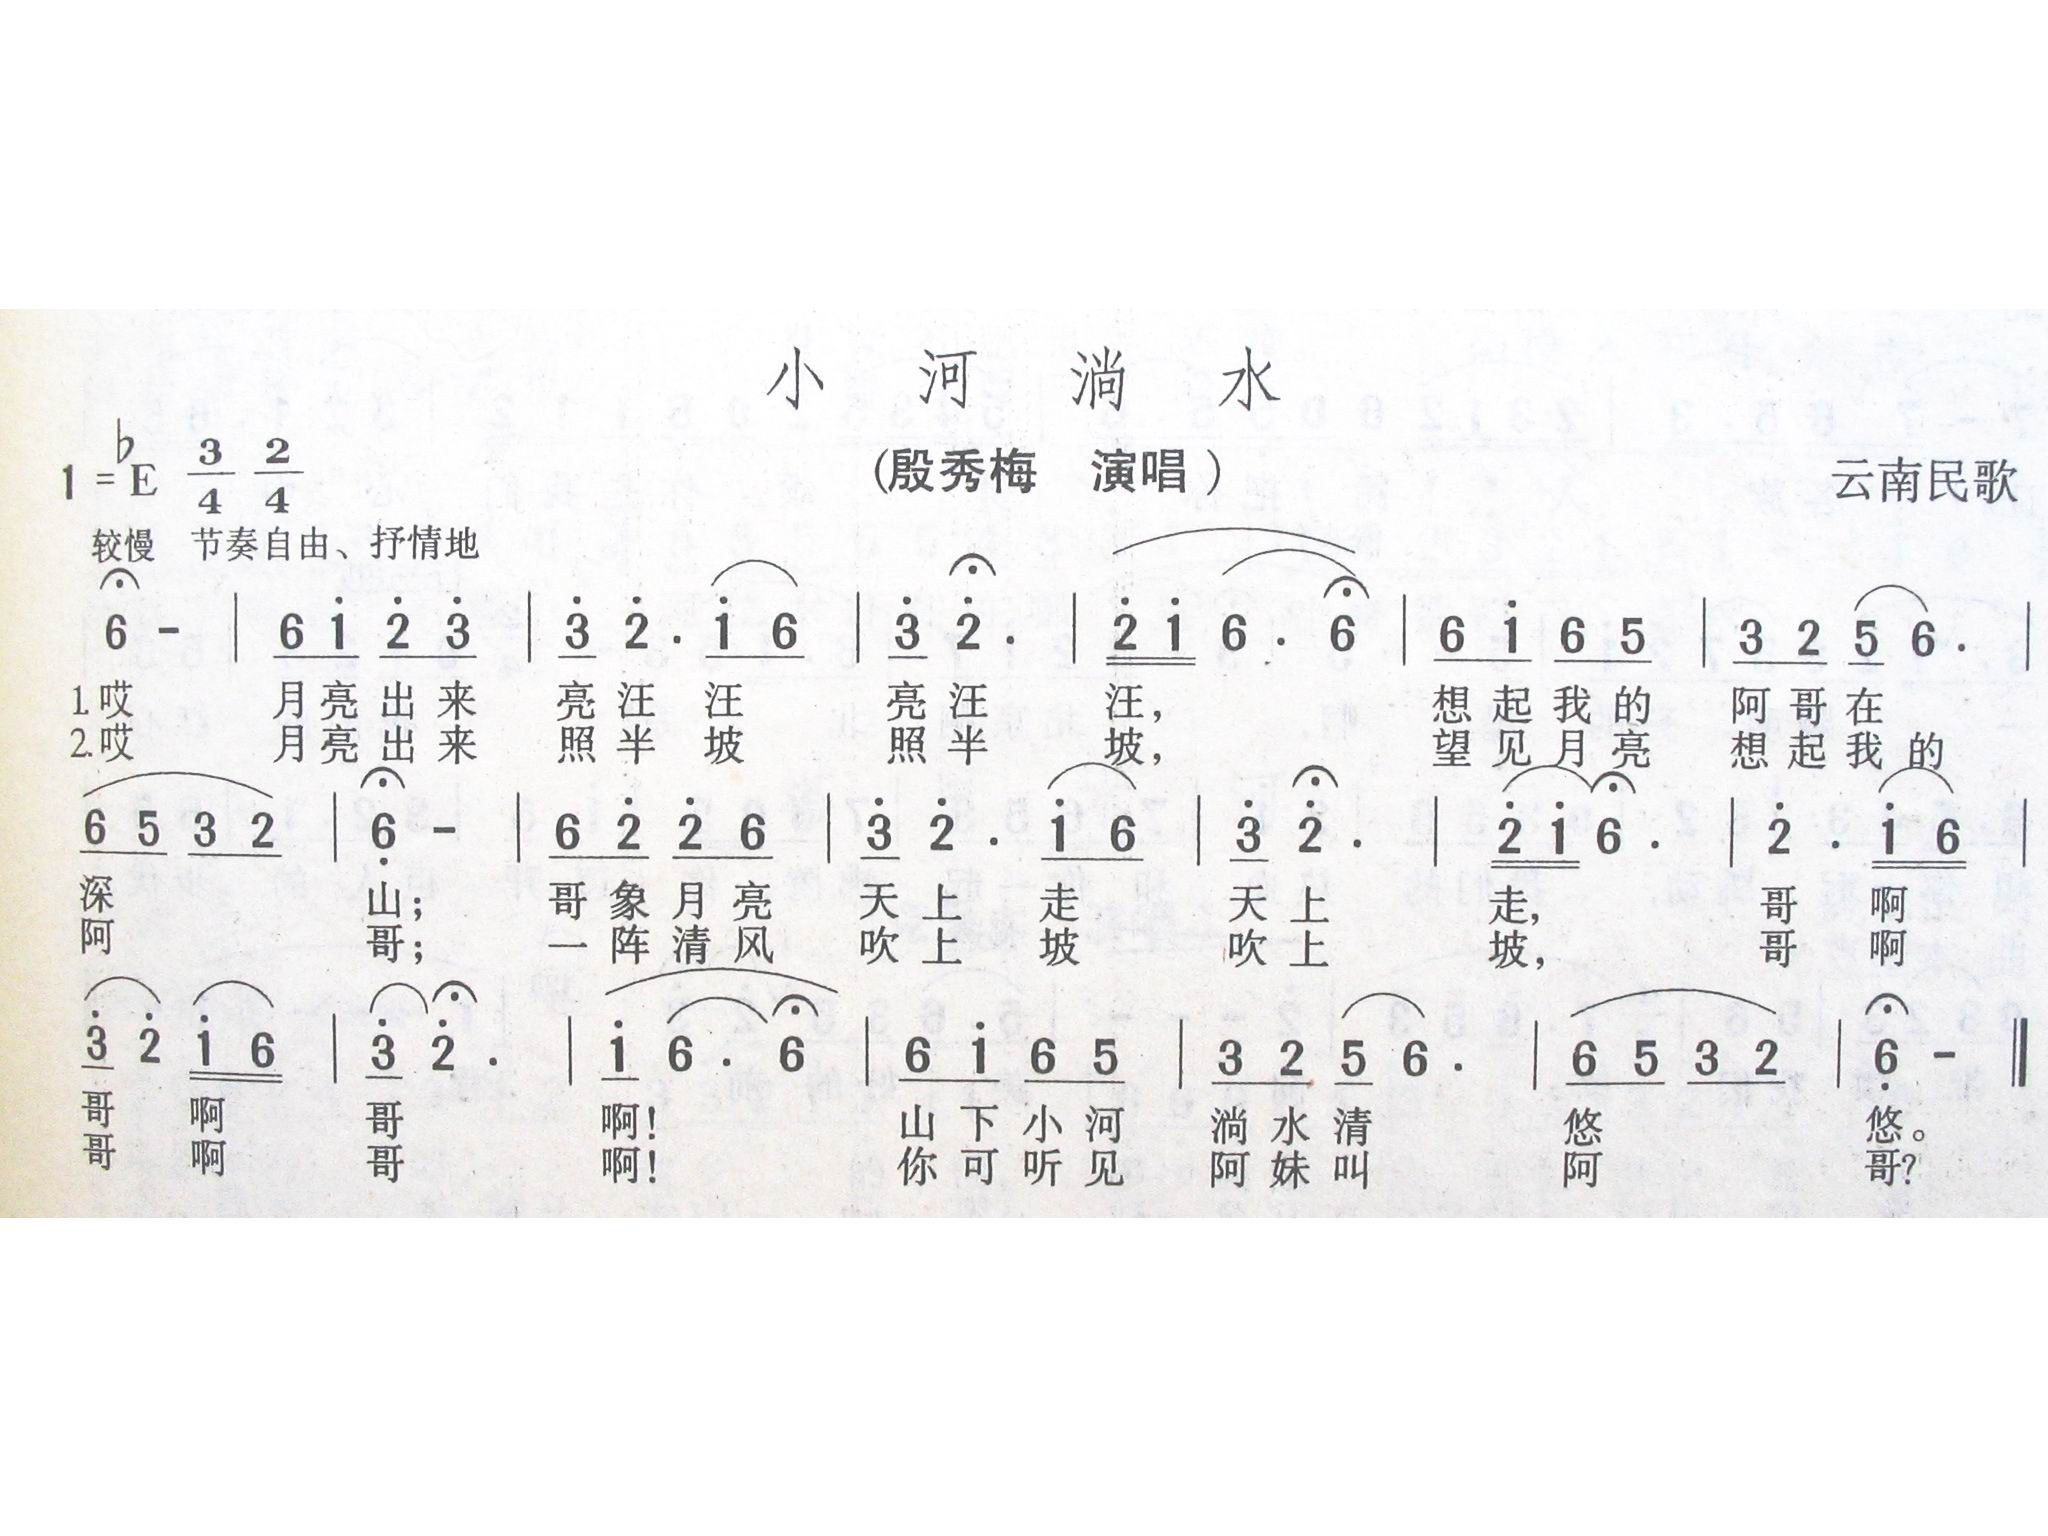 小河淌水
1=♭E 3/4 2/4
(殷秀梅 演唱)
云南民歌
较慢 节奏自由、抒情地
6 - | 6 i̇ 2̇ 3̇ | 3̇ 2̇ . i̇ 6 | 3̇ 2̇ . | 2̇ i̇ 6 . 6 | 6 i̇ 6 5 | 3 2 5 6 . |
1.哎 月亮出来 亮汪汪 亮汪汪, 想起我的 阿哥在
2.哎 月亮出来 照半坡 照半坡, 望见月亮 想起我的
6 5 3 2 | 6̣ - | 6 2̇ 2̇ 6 | 3̇ 2̇ . i̇ 6 | 3̇ 2̇ . | 2̇ i̇ 6 . | 2̇ . i̇ 6 |
深山; 哥象月亮 天上走 天上走, 哥啊
阿哥; 一阵清风 吹上坡 吹上坡, 哥啊
3̇ 2̇ i̇ 6 | 3̇ 2̇ . | i̇ 6 . 6 | 6 i̇ 6 5 | 3 2 5 6 . | 6 5 3 2 | 6̣ - ‖
哥啊 哥啊! 山下小河 淌水清悠悠。
哥啊 哥啊! 你可听见 阿妹叫阿哥?